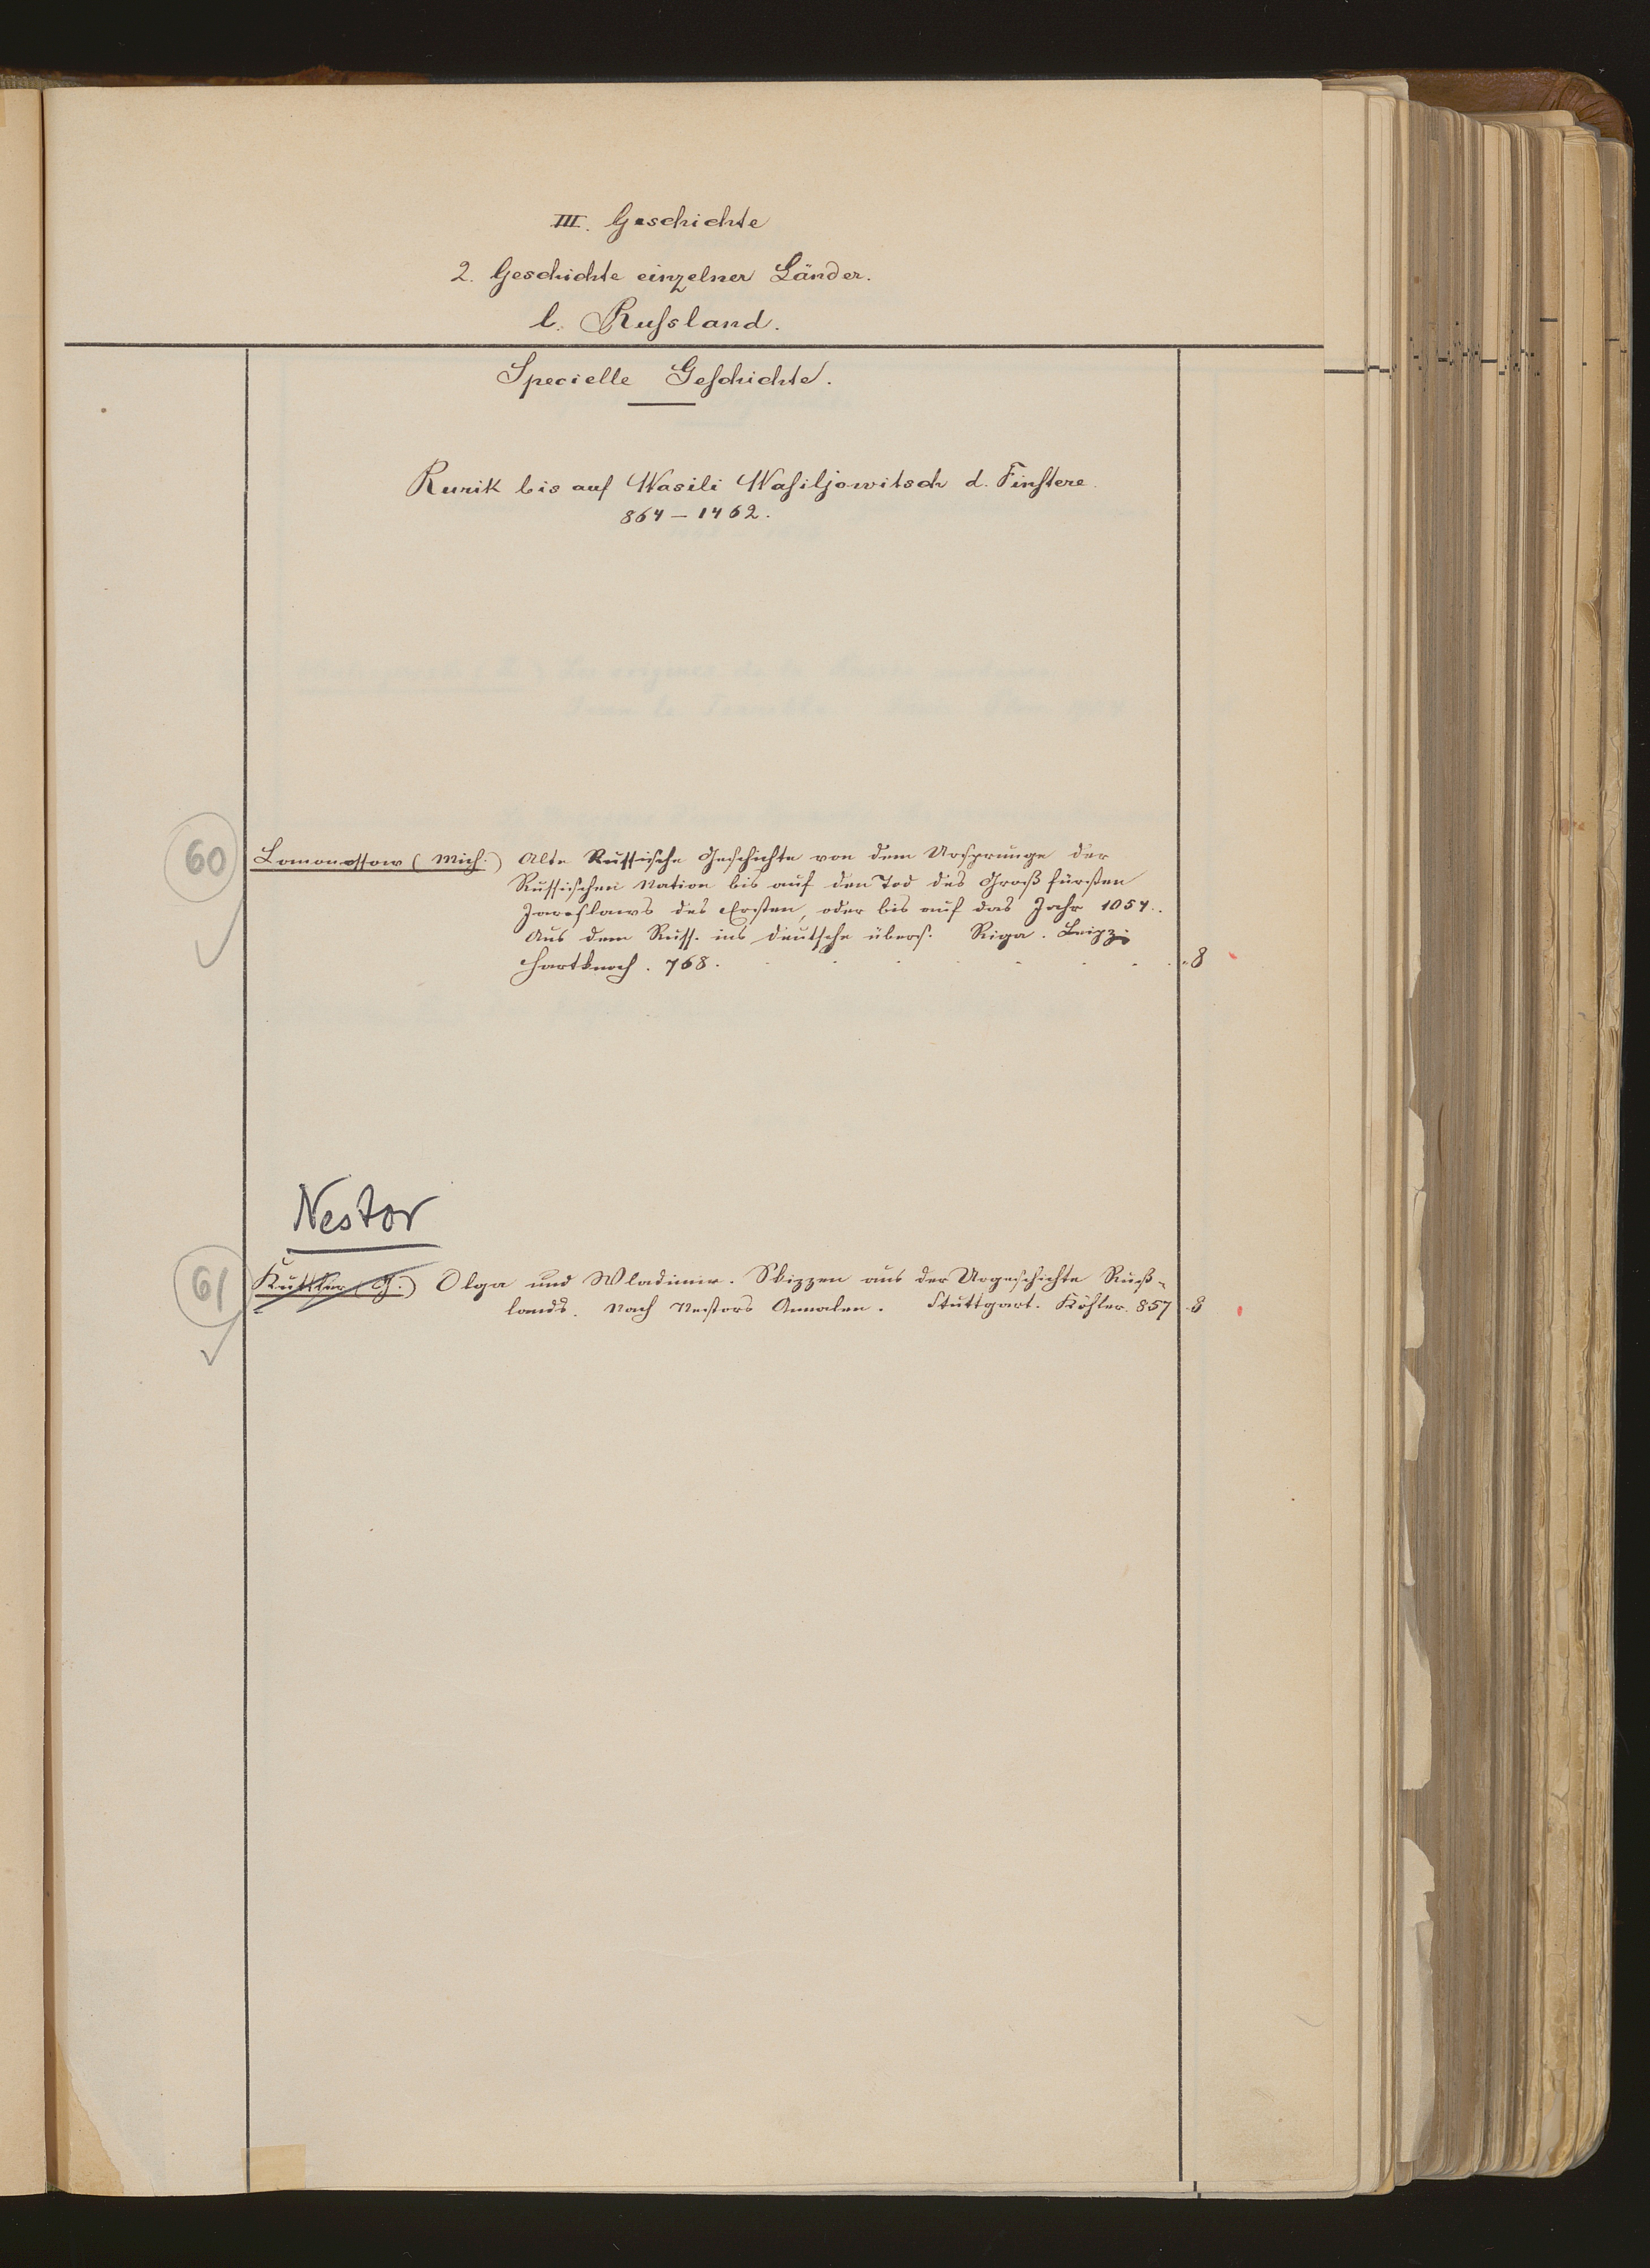 III. Geschichte
2. Geschichte einzelner Länder.
b. Russland.
Specielle Geschichte.
Rurik bis auf Wasili Wasiljowitsch d. Finstere.
864 – 1462.
60 Lomonossow (Mich.) Alte Russische Geschichte von dem Ursprunge der
Russischen Nation bis auf den Tod des Großfürsten
Jaroslaws des Ersten, oder bis auf das Jahr 1054.
Aus dem Russ. ins Deutsche übers. Riga. Leipz:
Hartknoch. 768. 8
Nestor
61 Küttler (J.) Olga und Wladimir. Skizzen aus der Urgeschichte Ruß-
lands. Nach Nestors Annalen. Stuttgart. Köhler. 857 8